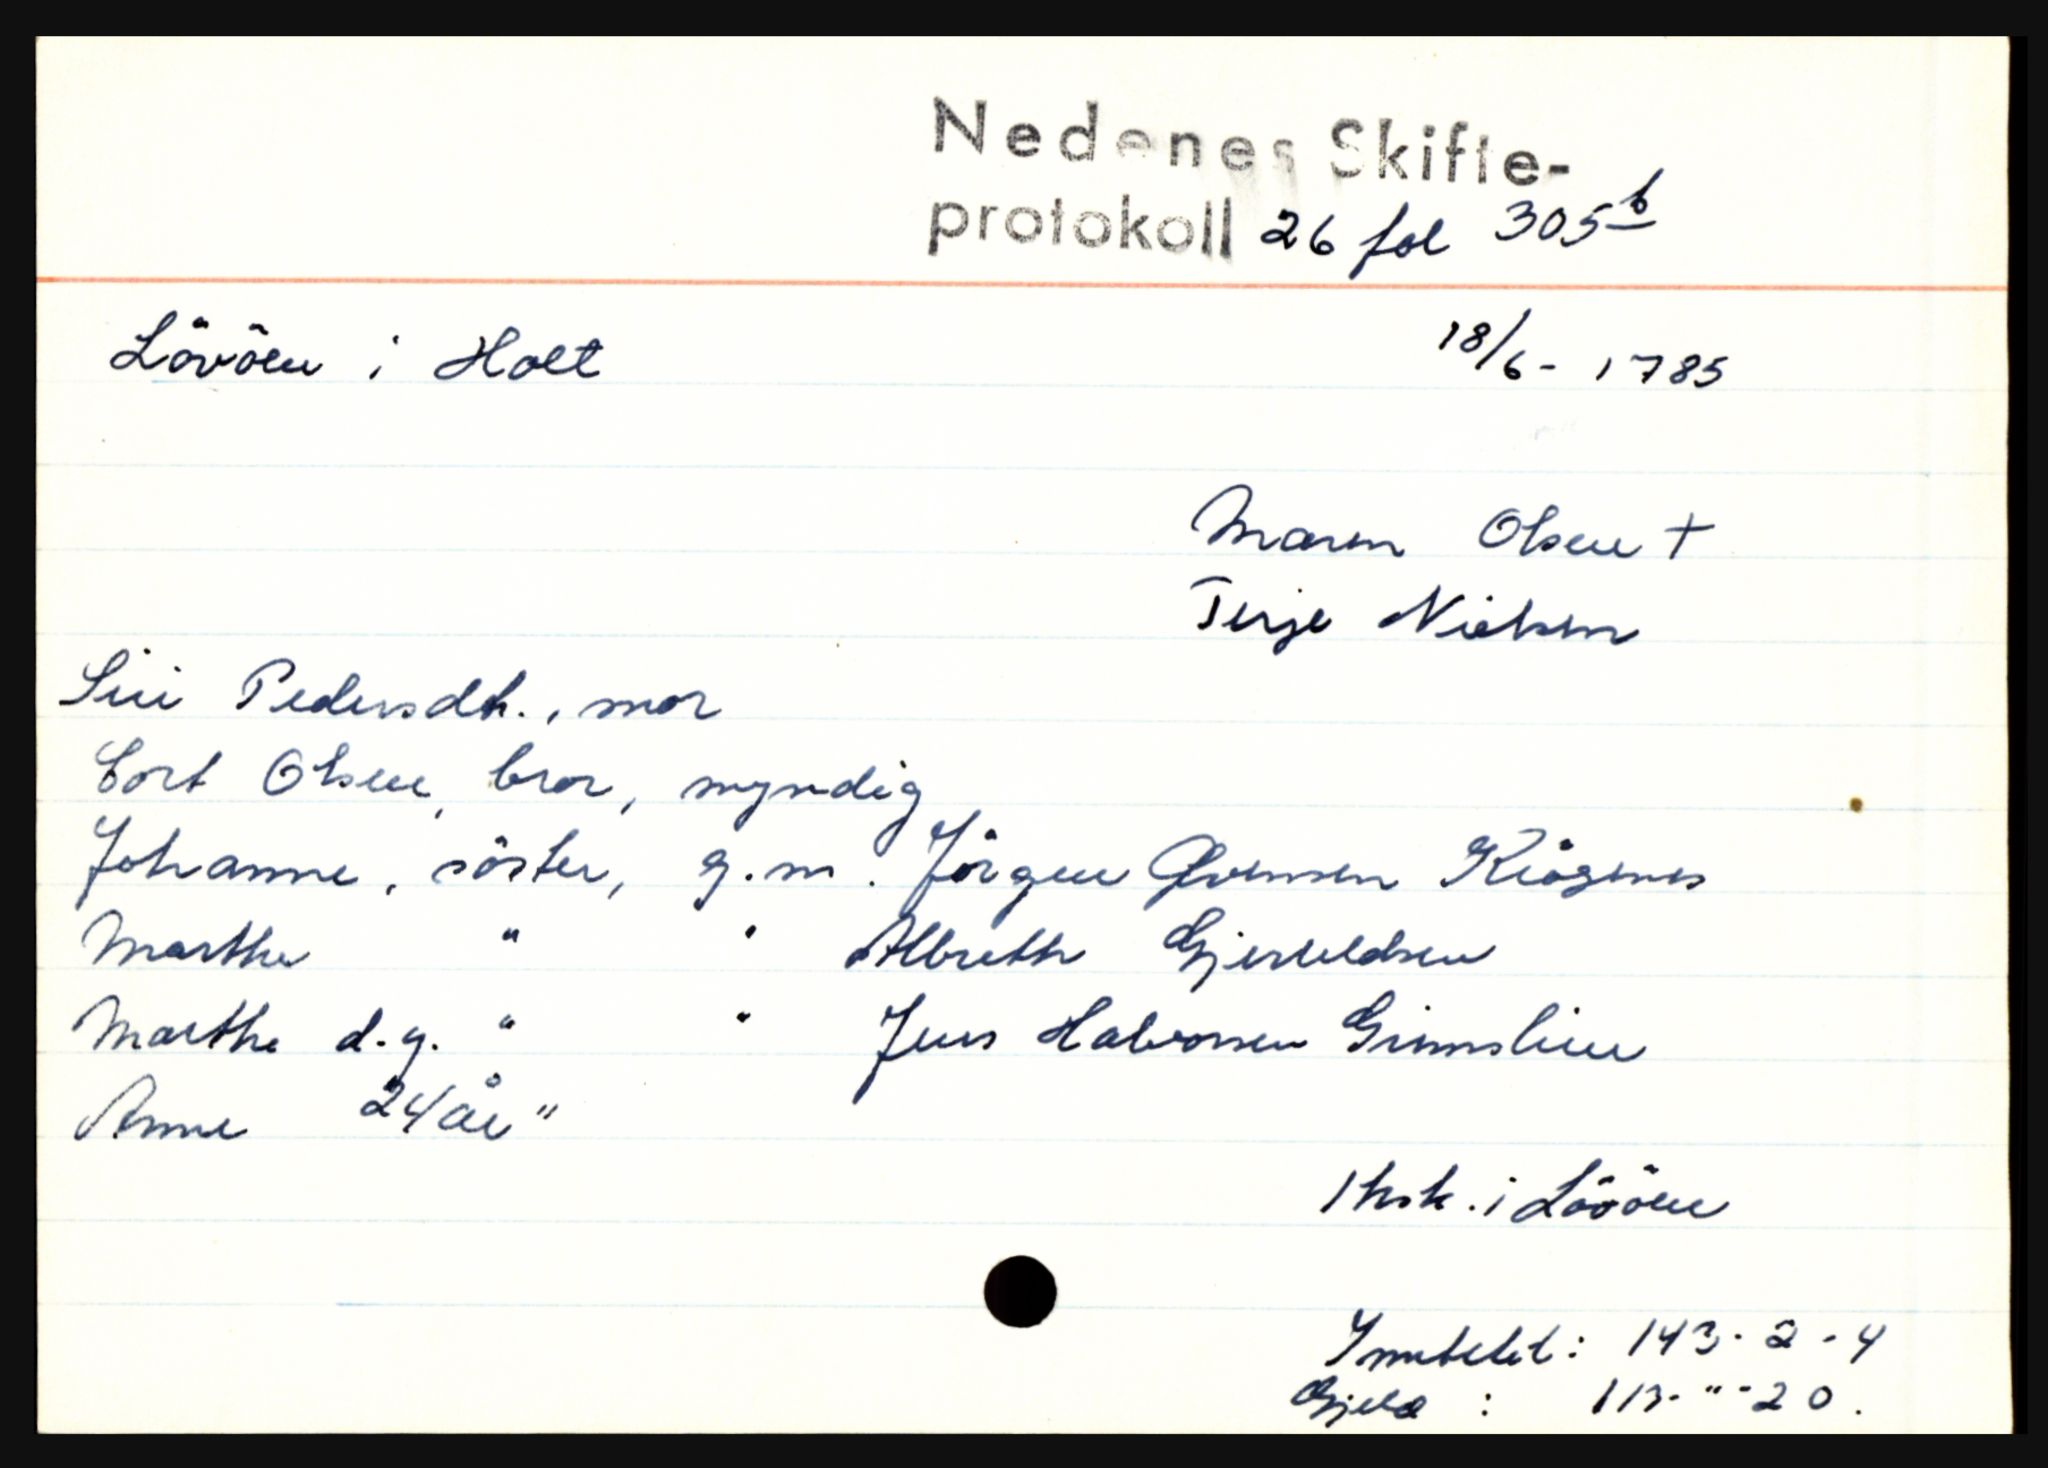 Nedenes Skifte-
protokoll 26 fol 305b
Lövöen i Holt 18/6- 1785
Maren Olsen +
Terje Nielsen
Siri Pedersdtr., mor
Cort Olsen, bror, myndig
Johanne, söster, g.m. Jörgen Evensen Kiögenes
Marthe " " Albreth Gjeruldsen
Marthe d.y. " " Jens Halvorsen Grimslien
Anne 24 år "
1 hsk. i Lövöen
Innteket: 143-2-4
Gjeld : 113-"-20.